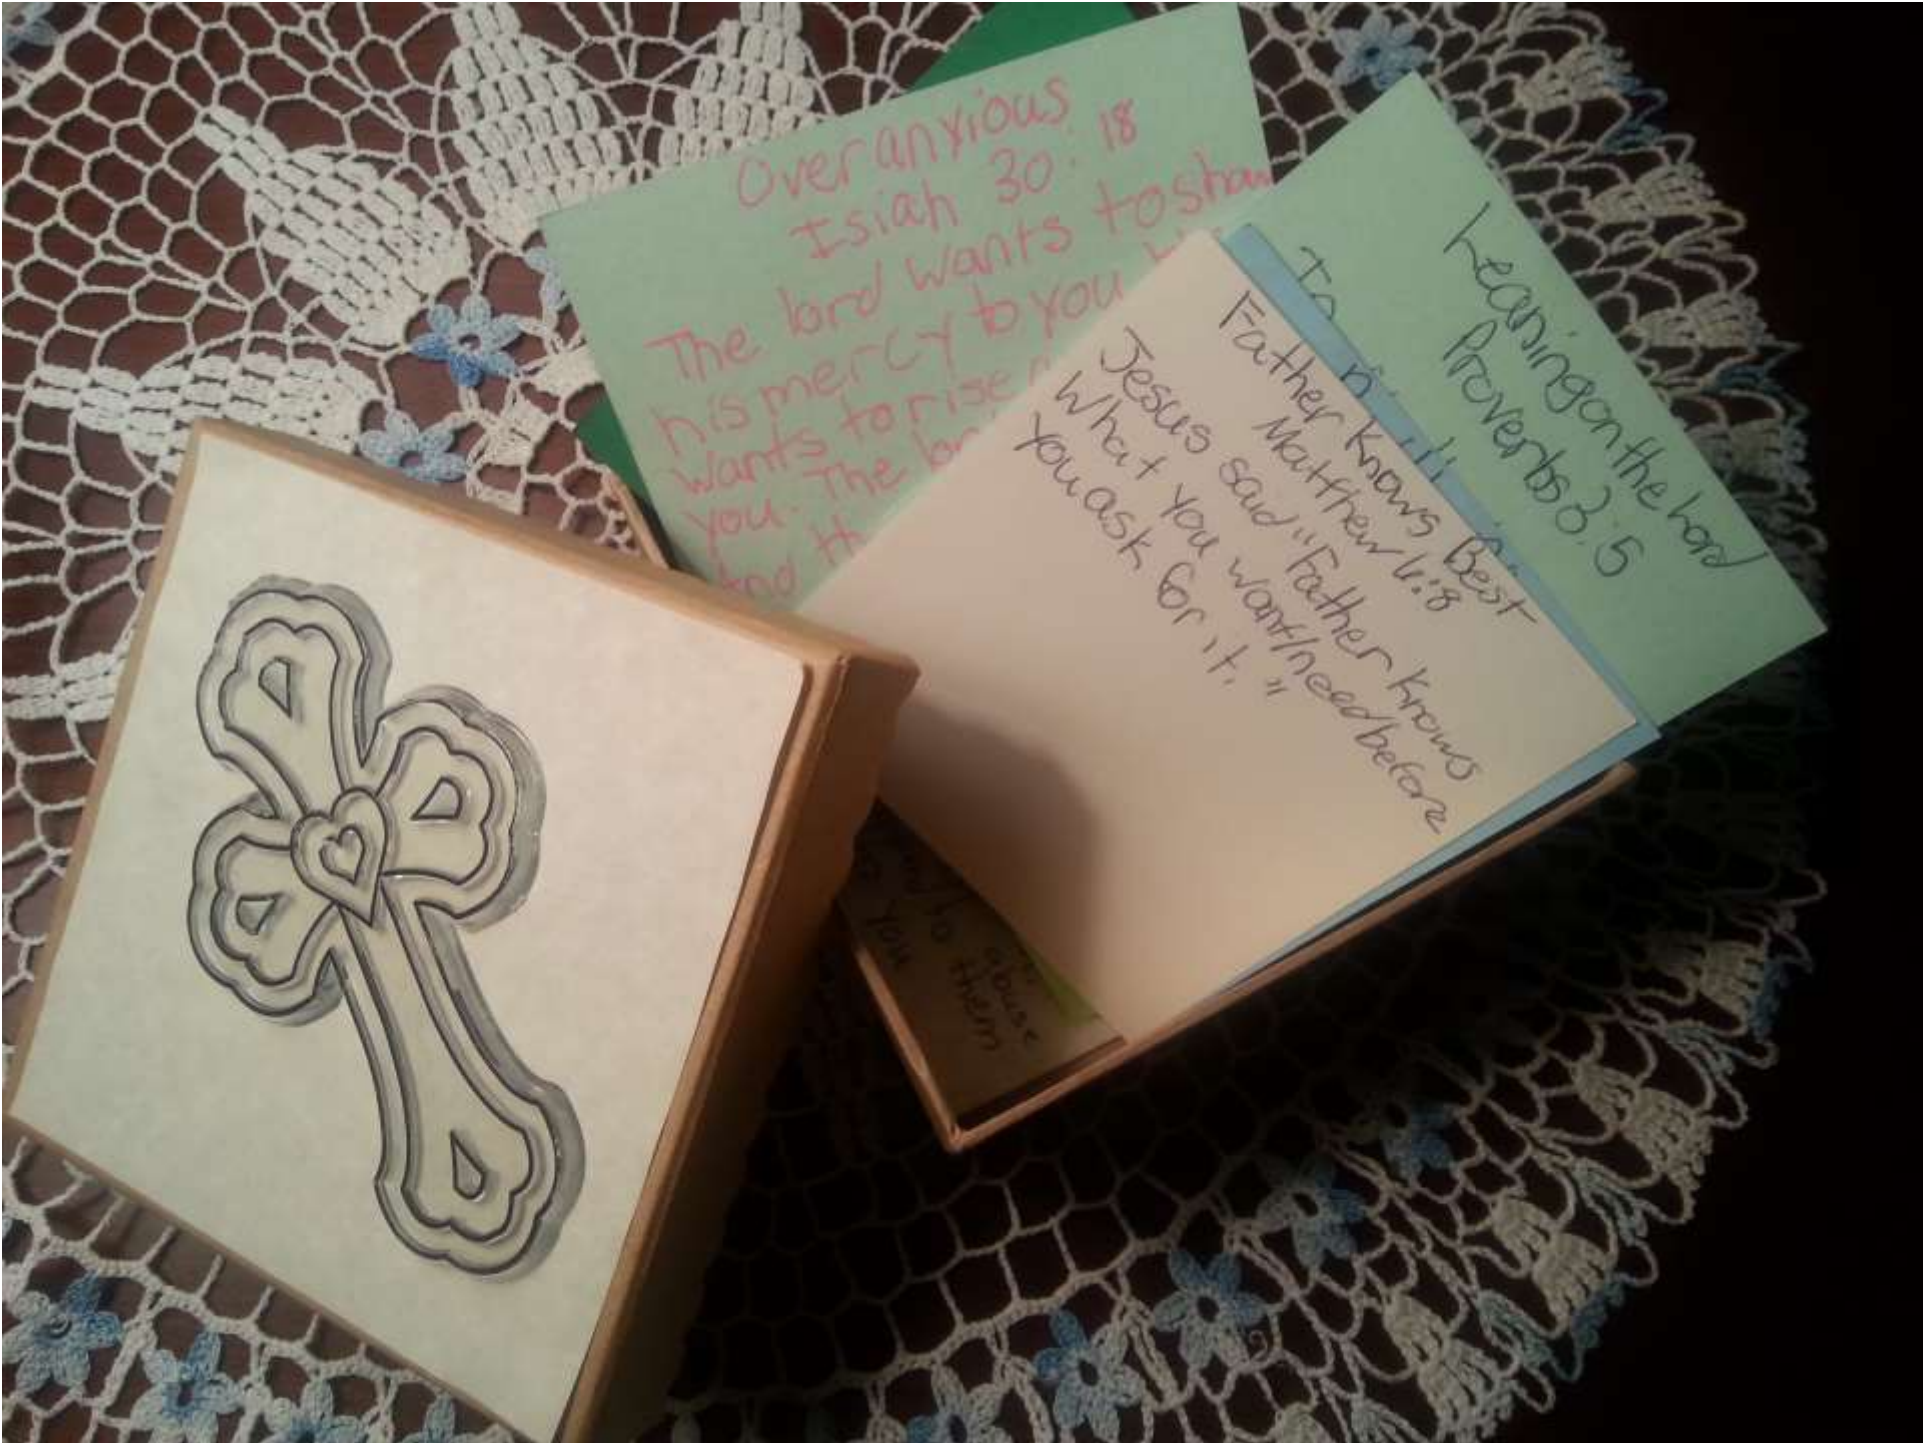 Overanxious
Isiah 30:18
The lord wants to show
his mercy to you
wants to rise
you. The
and
Leaning on the Lord
Proverbs 3:5
Father Knows Best
Matthew 6:8
Jesus said "Father Knows
What you want/need before
you ask for it."
abuse
them
you